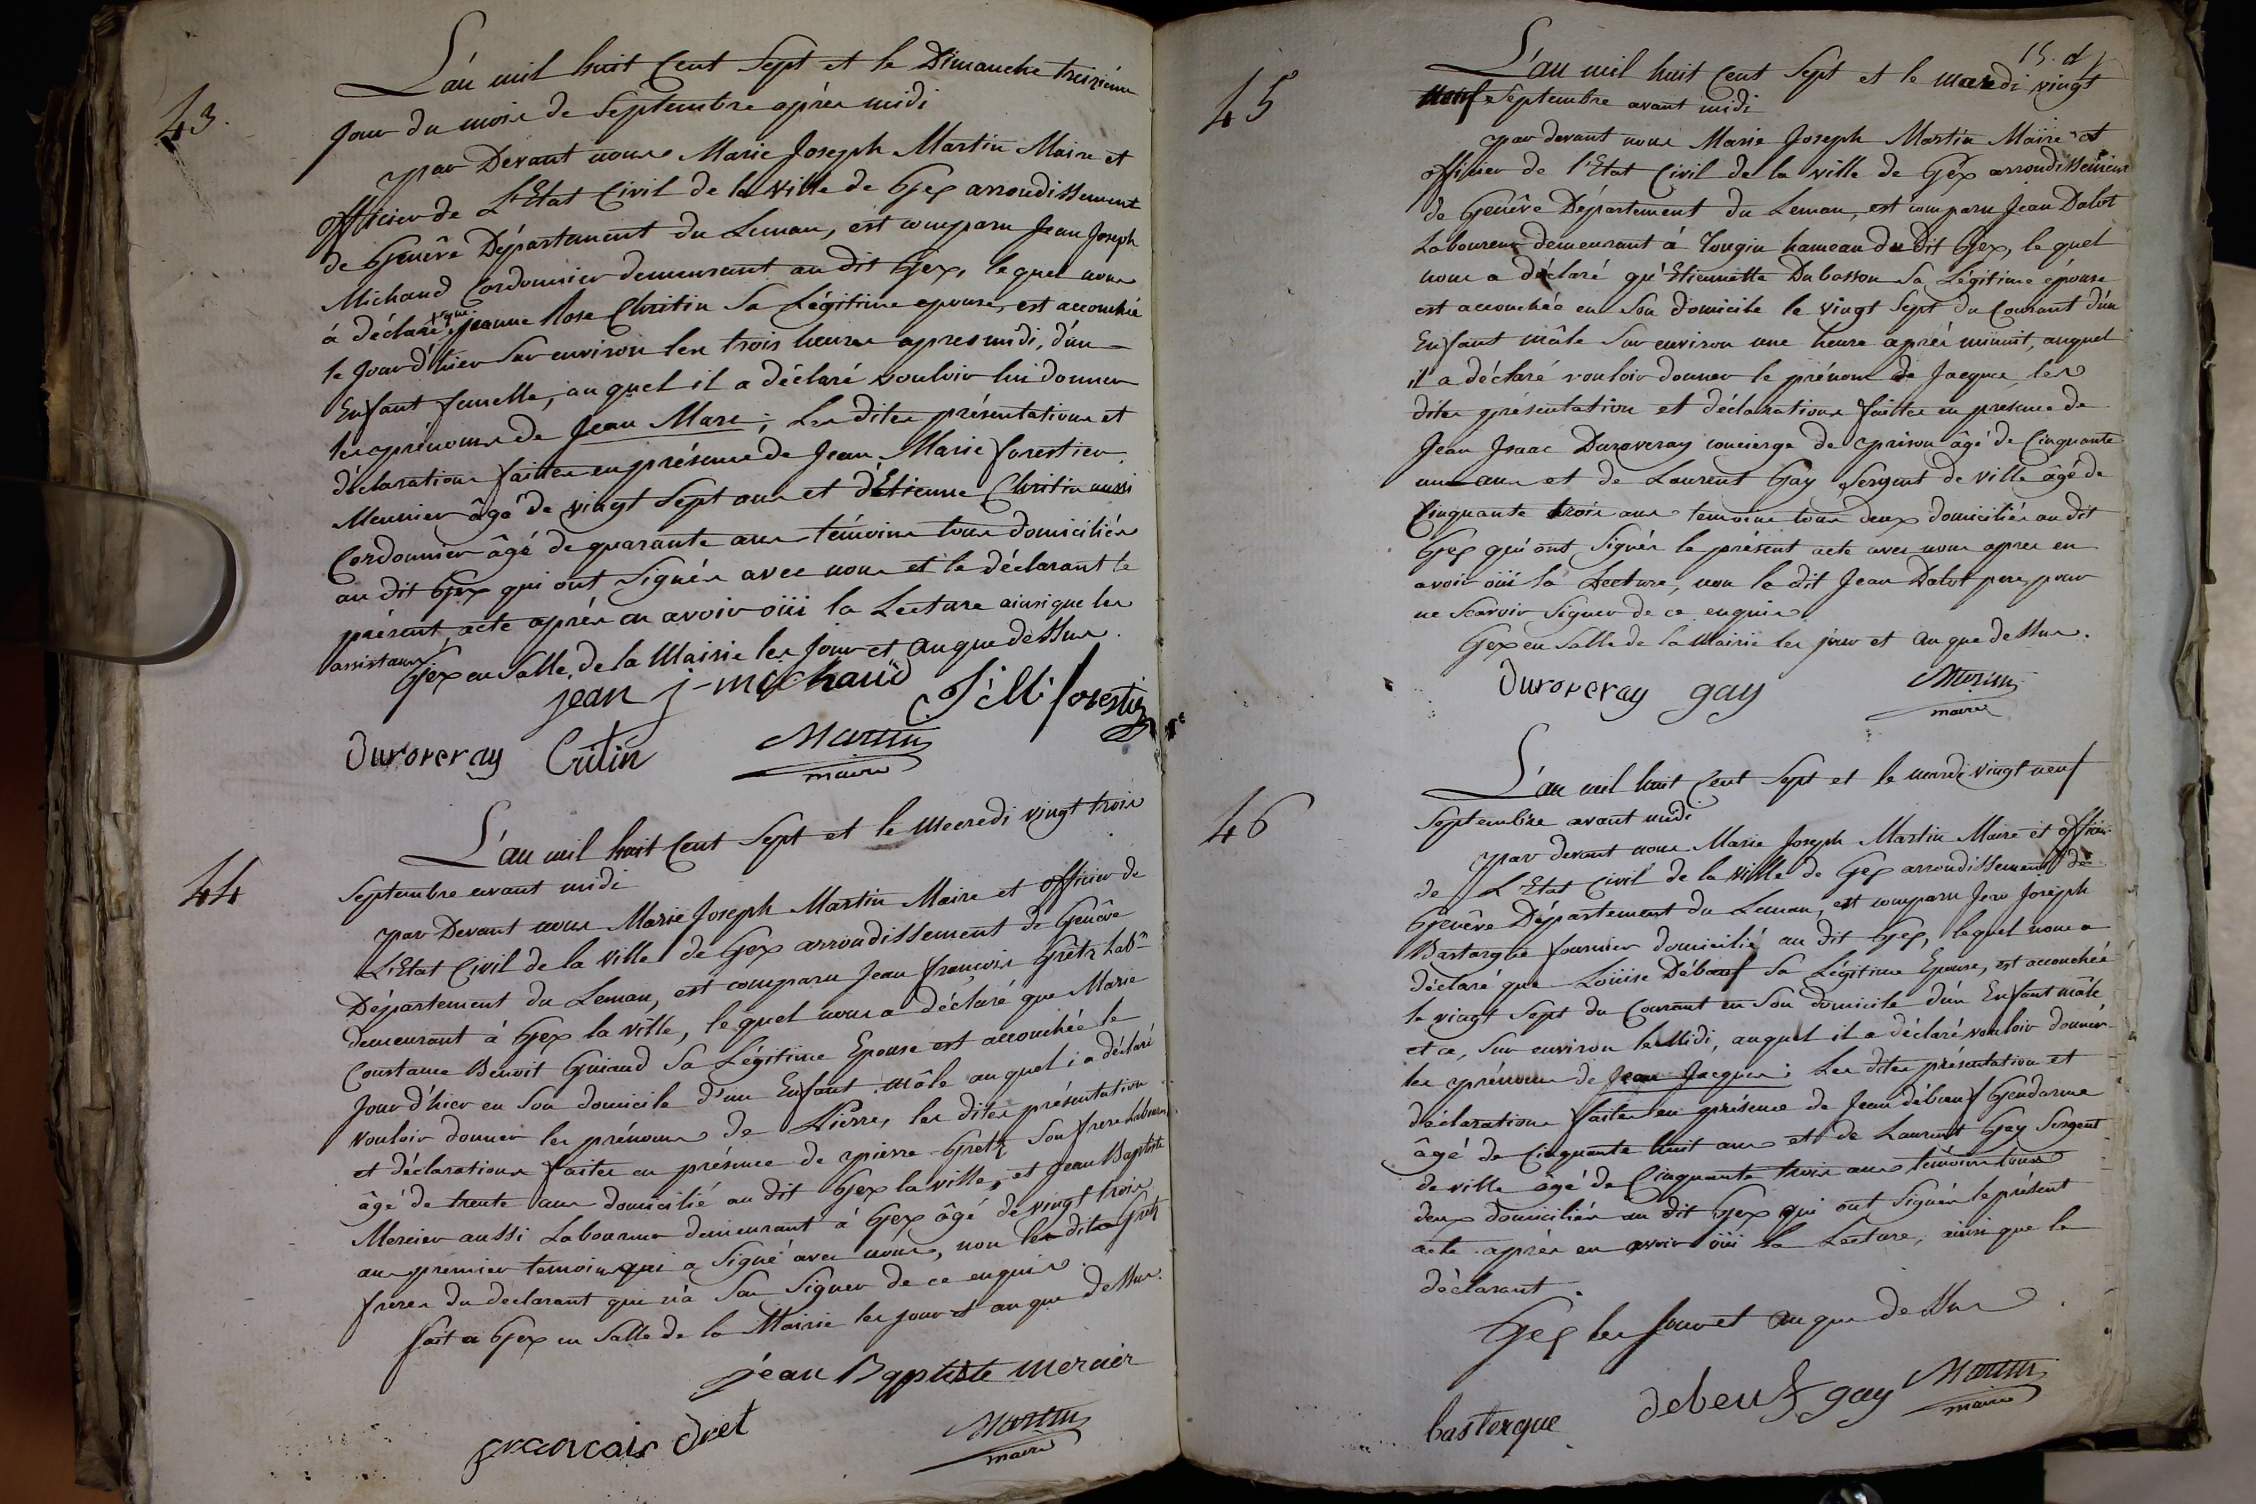 43.
L'an mil huit Cent Sept et le Dimanche treizième
Jour du mois de Septembre après midi
par Devant nous Marie Joseph Martin Maire et
officier de L'Etat Civil de la Ville de Gex arrondissement
de Genêve Département du Leman, est comparu Jean Joseph
Michaud Cordonnier demeurant au dit Gex, lequel nous
à déclaré que Jeanne Rose Christin Sa Légitime epouse, est accouchée
le Jour d'hier Sur environ les trois heures apres midi, d'un
Enfant femelle, au quel il a déclaré vouloir lui donner
les prénoms de Jean Marc; Les dites présentations et
déclarations faites en présence de Jean Marie forestier
Meunier âgé de vingt Sept ans et d'Etienne Christin aussi
Cordonnier âgé de quarante ans témoins tous domiciliés
au dit Gex qui ont Signés avec nous et le déclarant le
présent, acte après en avoir oüi la Lecture ainsi que les
assistans
Gex en Salle de la Mairie les Jour et an que dessus.
jean j-michaud J M forestier
Duroveray Critin Martin
maire
44
L'an mil huit Cent Sept et le Mecredi vingt trois
Septembre avant midi
par Devant nous Marie Joseph Martin Maire et officier de
L'Etat Civil de la Ville de Gex arrondissement de Genêve
Département du Leman, est comparu Jean françois Grétz Labr
demeurant à Gex la ville, lequel nous a déclaré que Marie
Constance Benoit Guiaud Sa Légitime Epouse est accouchée le
Jour d'hier en Son domicile d'un Enfant mâle au quel i a déclaré
vouloir donner les prénoms de Pierre, les dites présentation
et déclarations faites en présence de pierre Grétz Son frere Laboureur
âgé de trente ans domicilié au dit Gex la ville, et Jean Baptiste
Mercier aussi Laboureur demeurant à Gex âgé de vingt trois
ans premier temoin qui a Signé avec nous, non les dits Gretz
freres du declarant qui n'a Sau Signer de ce enquis.
fait a Gex en Salle de la Mairie les jour et an que dessus.
jean Baptiste mercier
francois Martin
maire
15. d
45
L'an mil huit Cent Sept et le mardi vingt
neuf Septembre avant midi
par devant nous Marie Joseph Martin Maire et
officier de l'Etat Civil de la ville de Gex arrondissement
de Genêve Département du Leman, est comparu Jean Dalot
Laboureur demeurant à Tougin hameau du dit Gex, le quel
nous a déclaré qu'Etiennette Dubosson Sa Légitime épouse
est accouchée en Son domicile le vingt Sept du Courant d'un
Enfant mâle Sur environ une heure après minuit, auquel
il a déclaré vouloir donner le prénom de Jacques, les
dites présentation et déclarations faittes en presence de
Jean Isaac Duroveray concierge de prison âgé de Cinquante
un ans et de Laurent Gay Sergent de ville âgé de
Cinquante trois ans temoins tous deux domiciliés au dit
Gex qui ont Signés le présent acte avec nous apres en
avoir oüi la Lecture, non le dit Jean Dalot pere, pour
ne Scavoir Signer de ce enquis
Gex en Salle de la Mairie les jour et an que dessus.
Duroveray gay Martin
maire
46
L'an mil huit Cent Sept et le mardi vingt neuf
Septembre avant midi
par devant nous Marie Joseph Martin Maire et officier
de L'Etat Civil de la ville de Gex arrondissement de
Genêve Département du Leman, est comparu Jean Joseph
Bastargue fournier domicilié au dit Gex, lequel nous a
déclaré que Loüise Débœuf Sa Légitime Epouse, est accouchée
le vingt Sept du Courant en Son domicile d'un Enfant mâle
et ce, Sur environ le Midi, auquel il a déclaré vouloir donner
les prénoms de Jean Jacques: Les dites présentation et
déclarations faites en présence de Jean débœuf Géndarme
âgé de Cinquante huit ans et de Laurent Gay Sergent
de ville âgé de Cinquante trois ans témoins tous
deux domiciliés au dit Gex qui ont Signés le présent
acte après en avoir oüi la Lecture, ainsi que le
déclarant.
Gex les Jour et an que dessus
basterque debeuf gay Martin
maire